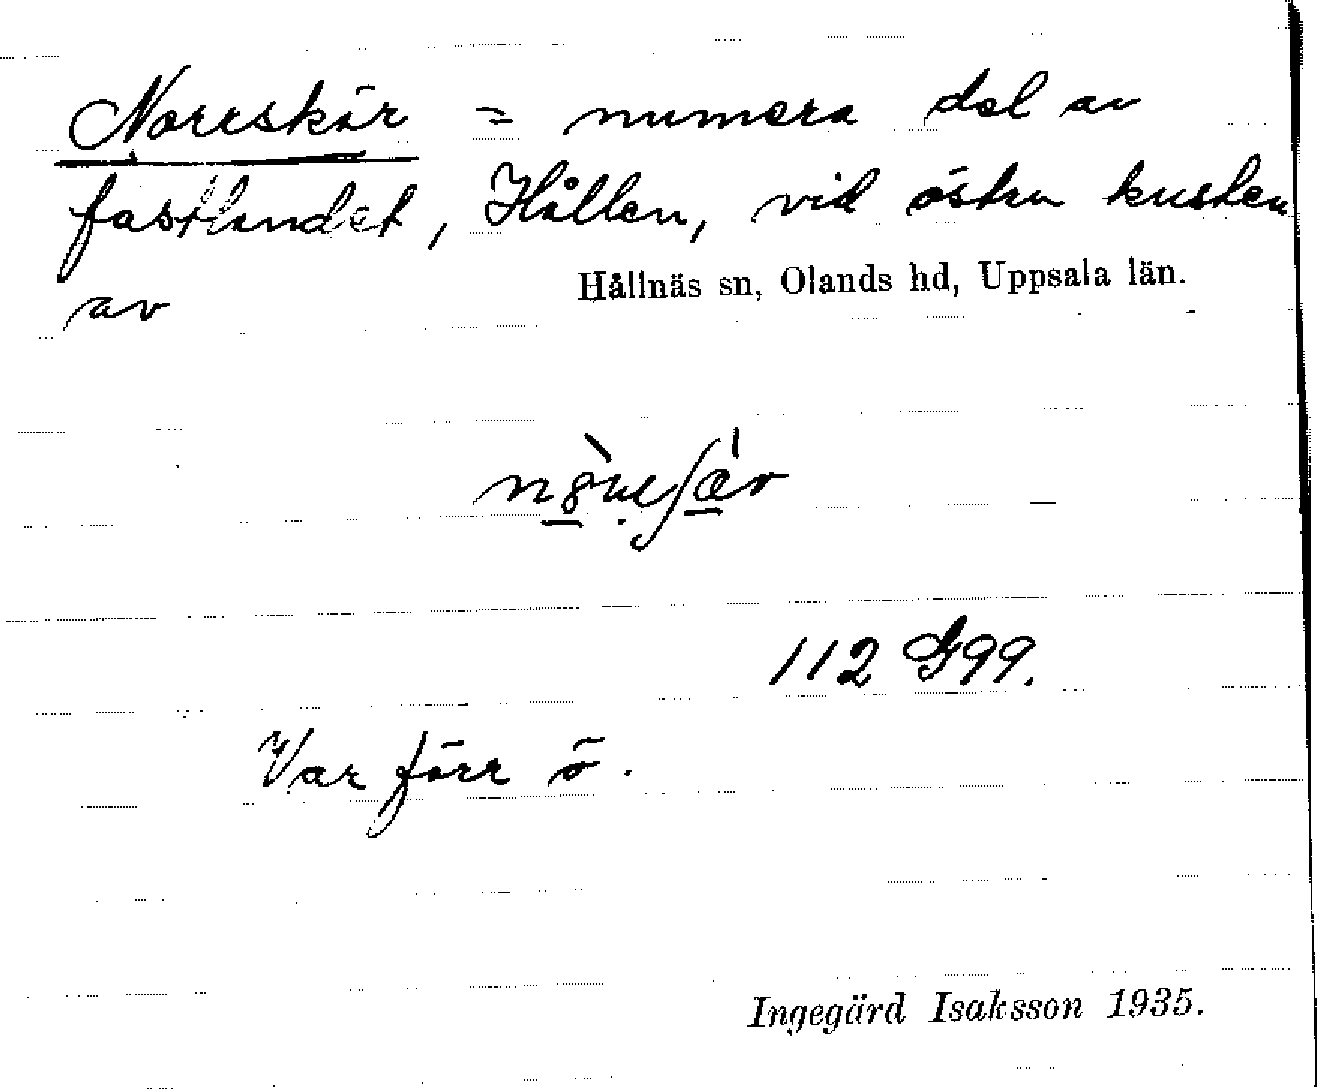 Norrskär = numera del av
fastlandet, Hållen, vid östra kusten
Hållnäs sn, Olands hd, Uppsala län.
av
112 G99.
Var förr ö.
Ingegärd Isaksson 1935.